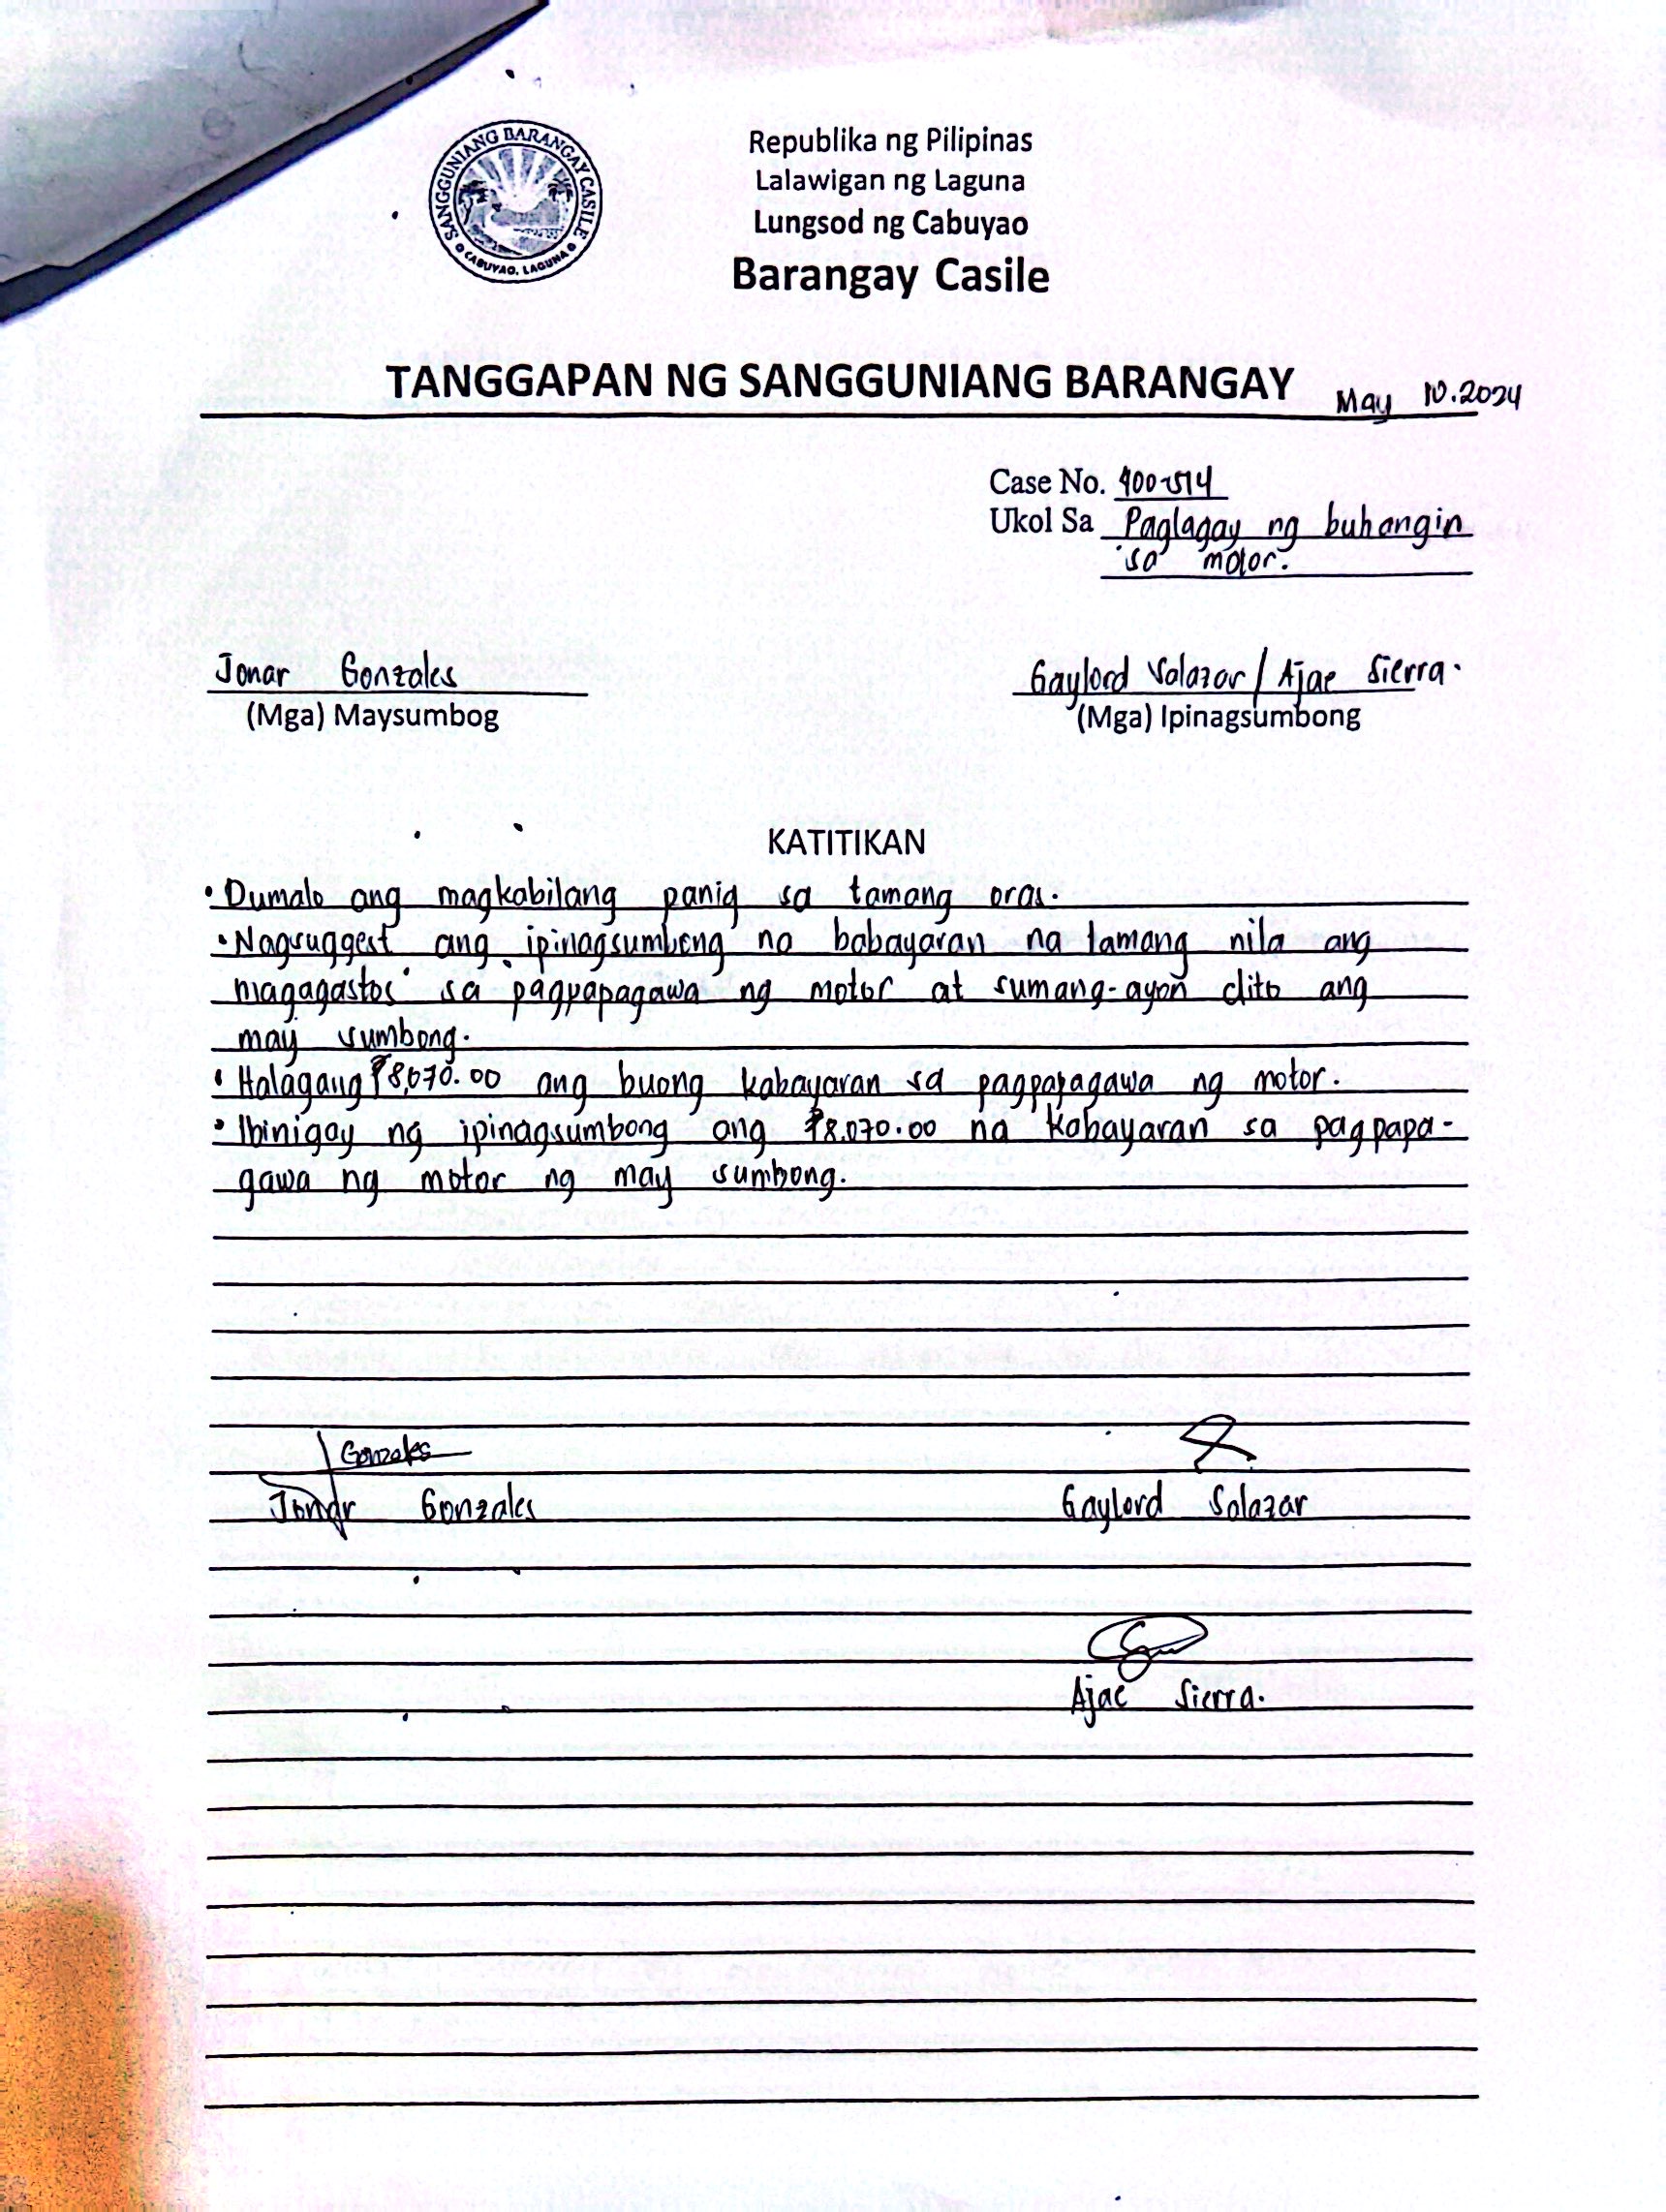 SANGGUNIANG BARANGAY CASILE
CABUYAO, LAGUNA
Republika ng Pilipinas
Lalawigan ng Laguna
Lungsod ng Cabuyao
Barangay Casile
TANGGAPAN NG SANGGUNIANG BARANGAY May 10.2024
Case No.
Ukol Sa Paglagay ng buhangin
sa motor.
Jonar Gonzales Gaylord Salazar / Ajae Sierra.
(Mga) Maysumbog (Mga) Ipinagsumbong
KATITIKAN
• Dumalo ang magkabilang panig sa tamang oras.
• Nagsuggest ang ipinagsumbong na babayaran na lamang nila ang
magagastos sa pagpapagawa ng motor at sumang-ayon dito ang
may sumbong.
• Halagang ₱8,070.00 ang buong kabayaran sa pagpapagawa ng motor.
• Ibinigay ng ipinagsumbong ang ₱8,070.00 na kabayaran sa pagpapa-
gawa ng motor ng may sumbong.
Gonzales
Jonar Gonzales Gaylord Salazar
Ajae Sierra.